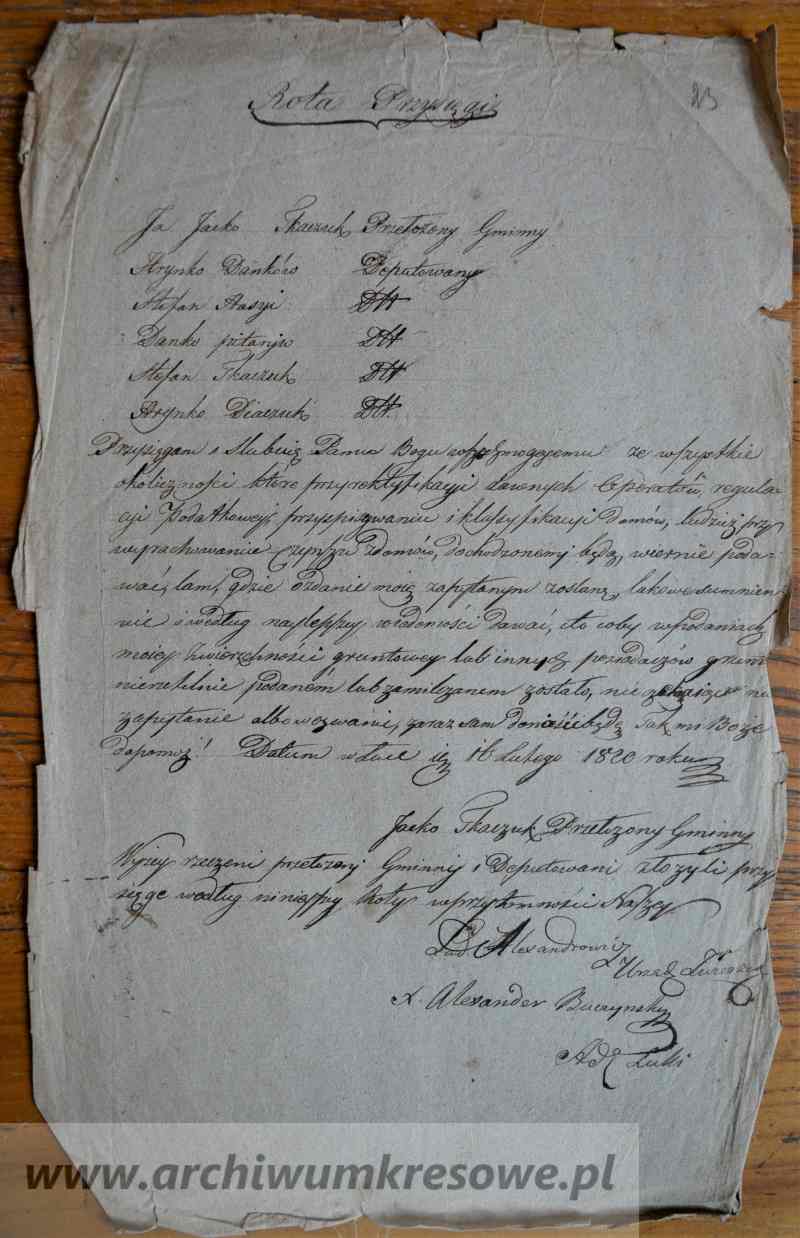 Rota Przysięgi
23
Ja Jacko Tkaczuk Przełożony Gminny
Hrynko Dańków Deputowany
Stefan Dtt
Danko Dtt
Stefan Tkaczuk Dtt
Hrynko Diaczuk Dtt.
Przysięgam i Slubuię Panu Bogu wszechmogącemu że wszystkie
okoliczności które przy rektyfikacyi dawnych Operatów regula-
cyi Podatkowey, przy spisywaniu i klassyfikacyi domów, tudzież przy
wyrachowaniu czynszu z domów, dochodzonemi będą, wiernie poda-
wać, tam, gdzie o zdanie moie zapytanym zostanę, takowe sumnien
nie i według naylepszy wiadomości dawać, i to coby w podaniach
moiey Zwierzchności gruntowey lub innych posiadaczów gruntu
nierzetelnie podanem lub zamilczanem zostało, nie na
zapytanie albo wezwanie, zaraz sam donieść będę Tak mi Boże
dopomoż! Datum w Łuce 16 Lutego 1820 roku
Jacko Tkaczuk Przełożony Gminny
Wyżey rzeczeni przełożony Gminny i Deputowani złożyli przy
sięgę według ninieyszy Roty w przytomności Naszey
Alexandrowicz
Urząd
X. Alexander Buczynsky
Łuki
www.archiwumkresowe.pl